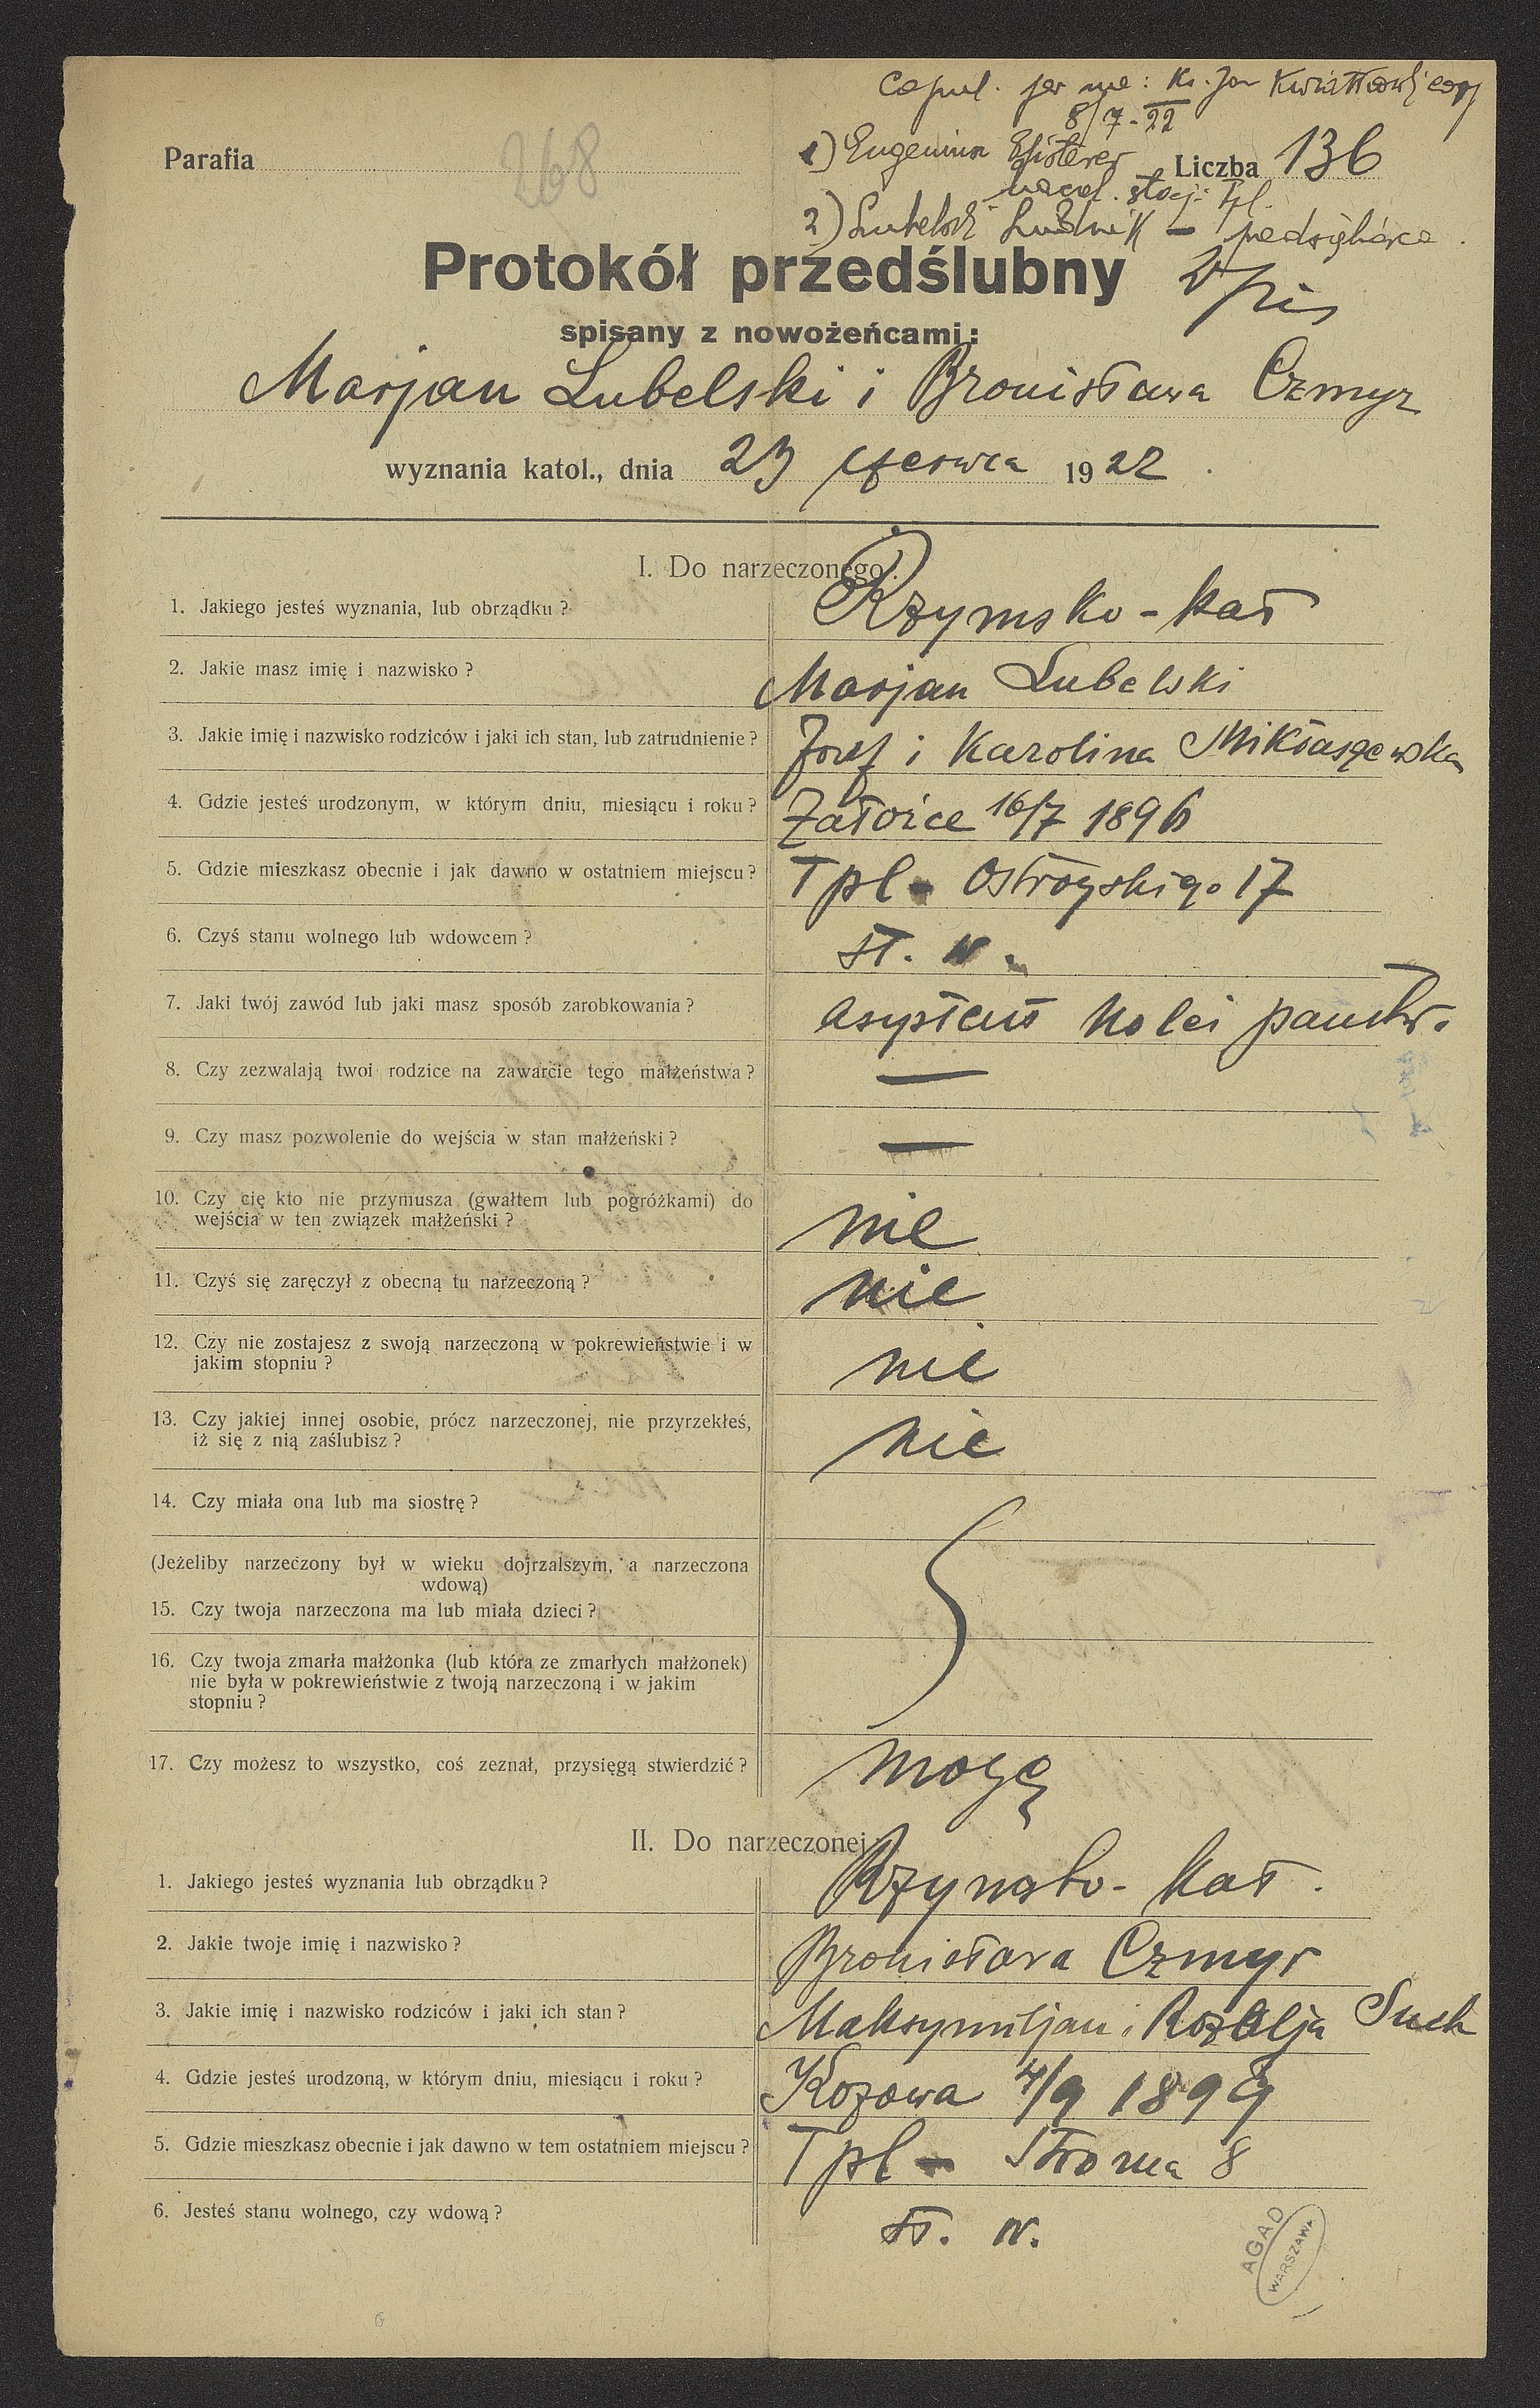 Copul. per me: Ks. Jan Kwiatkowski
8/7-22
Parafia
268
1) Eugeniusz
Liczba 136
stacji Tpl.
2) Lubelski Ludwik –
Protokół przedślubny
spisany z nowożeńcami:
Marjan Lubelski i Bronisława Czmyr
wyznania katol., dnia 23 czerwca 1922.
I. Do narzeczonego:
1. Jakiego jesteś wyznania, lub obrządku? Rzymsko-kat
2. Jakie masz imię i nazwisko? Marjan Lubelski
3. Jakie imię i nazwisko rodziców i jaki ich stan, lub zatrudnienie? Józef i Karolina Mikłaszewska
4. Gdzie jesteś urodzonym, w którym dniu, miesiącu i roku? Załoźce 16/7 1896
5. Gdzie mieszkasz obecnie i jak dawno w ostatniem miejscu? Tpl - Ostrogskiego 17
6. Czyś stanu wolnego lub wdowcem? st. w.
7. Jaki twój zawód lub jaki masz sposób zarobkowania? asystent kolei państw.
8. Czy zezwalają twoi rodzice na zawarcie tego małżeństwa? —
9. Czy masz pozwolenie do wejścia w stan małżeński? —
10. Czy cię kto nie przymusza (gwałtem lub pogróżkami) do
wejścia w ten związek małżeński? nie
11. Czyś się zaręczył z obecną tu narzeczoną? nie
12. Czy nie zostajesz z swoją narzeczoną w pokrewieństwie i w
jakim stopniu? nie
13. Czy jakiej innej osobie, prócz narzeczonej, nie przyrzekłeś,
iż się z nią zaślubisz? nie
14. Czy miała ona lub ma siostrę?
(Jeżeliby narzeczony był w wieku dojrzalszym, a narzeczona
wdową)
15. Czy twoja narzeczona ma lub miała dzieci?
16. Czy twoja zmarła małżonka (lub która ze zmarłych małżonek)
nie była w pokrewieństwie z twoją narzeczoną i w jakim
stopniu?
17. Czy możesz to wszystko, coś zeznał, przysięgą stwierdzić? mogę
II. Do narzeczonej
1. Jakiego jesteś wyznania lub obrządku? Rzymsko-kat.
2. Jakie twoje imię i nazwisko? Bronisława Czmyr
3. Jakie imię i nazwisko rodziców i jaki ich stan? Maksymiljan i Rozalja Such
4. Gdzie jesteś urodzoną, w którym dniu, miesiącu i roku? Kozowa 4/9 1899
5. Gdzie mieszkasz obecnie i jak dawno w tem ostatniem miejscu? Tpl - Stroma 8
6. Jesteś stanu wolnego, czy wdową? st. w.
AGAD
WARSZAWA